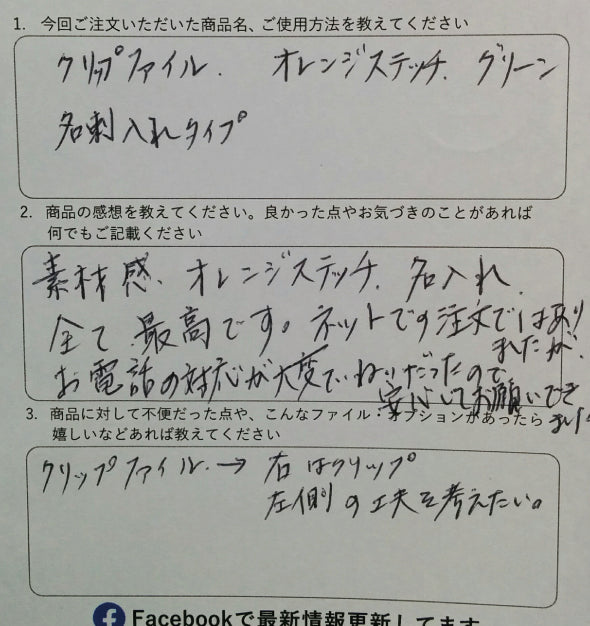 1. 今回ご注文いただいた商品名、ご使用方法を教えてください
クリップファイル. オレンジステッチ. グリーン
名刺入れタイプ
2. 商品の感想を教えてください。良かった点やお気づきのことがあれば
何でもご記載ください
素材感、オレンジステッチ、名入れ、
全て最高です。ネットでの注文ではあり
ましたが、
お電話の対応が大変ていねいだったので
安心してお願いでき
ました
3. 商品に対して不便だった点や、こんなファイル・オプションがあったら
嬉しいなどあれば教えてください
クリップファイル.→ 右はクリップ
左側の工夫を考えたい。
Facebookで最新情報更新してます